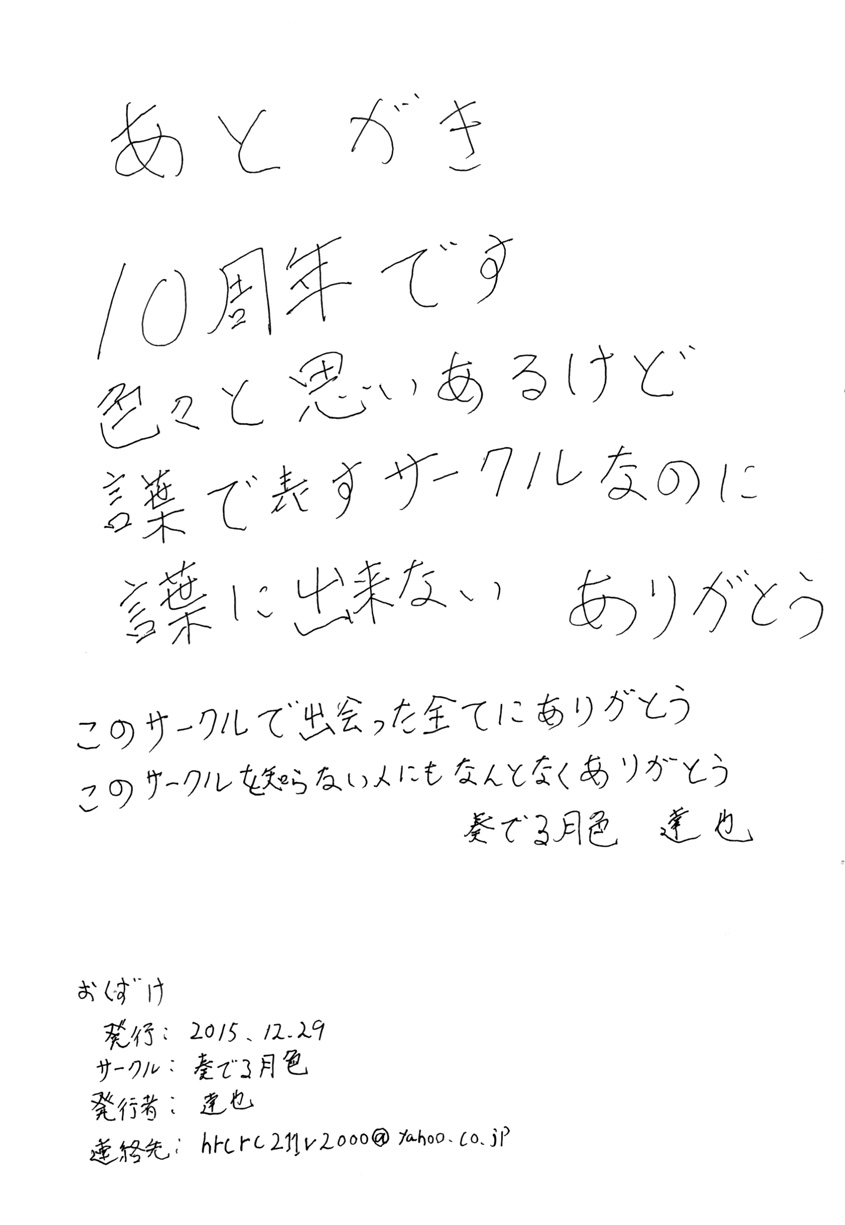 あとがき
10周年です
色々と思いあるけど
言葉で表すサークルなのに
言葉に出来ない ありがとう
このサークルで出会った全てにありがとう
このサークルを知らない人にもなんとなくありがとう
奏でる月色 達也
おくずけ
発行: 2015.12.29
サークル: 奏でる月色
発行者: 達也
連絡先: